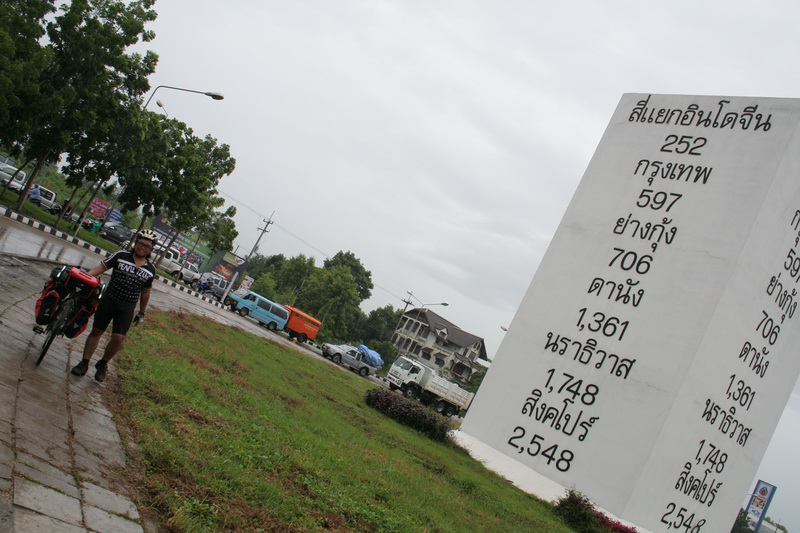 สี่แยกอินโดจีน
252
กรุงเทพ
597
ย่างกุ้ง
706
ดานัง
1,361
นราธิวาส
1,748
สิงคโปร์
2,548
706
ดานัง
1,361
นราธิวาส
1,748
สิงคโปร์
2,548
PEARL IZUMI